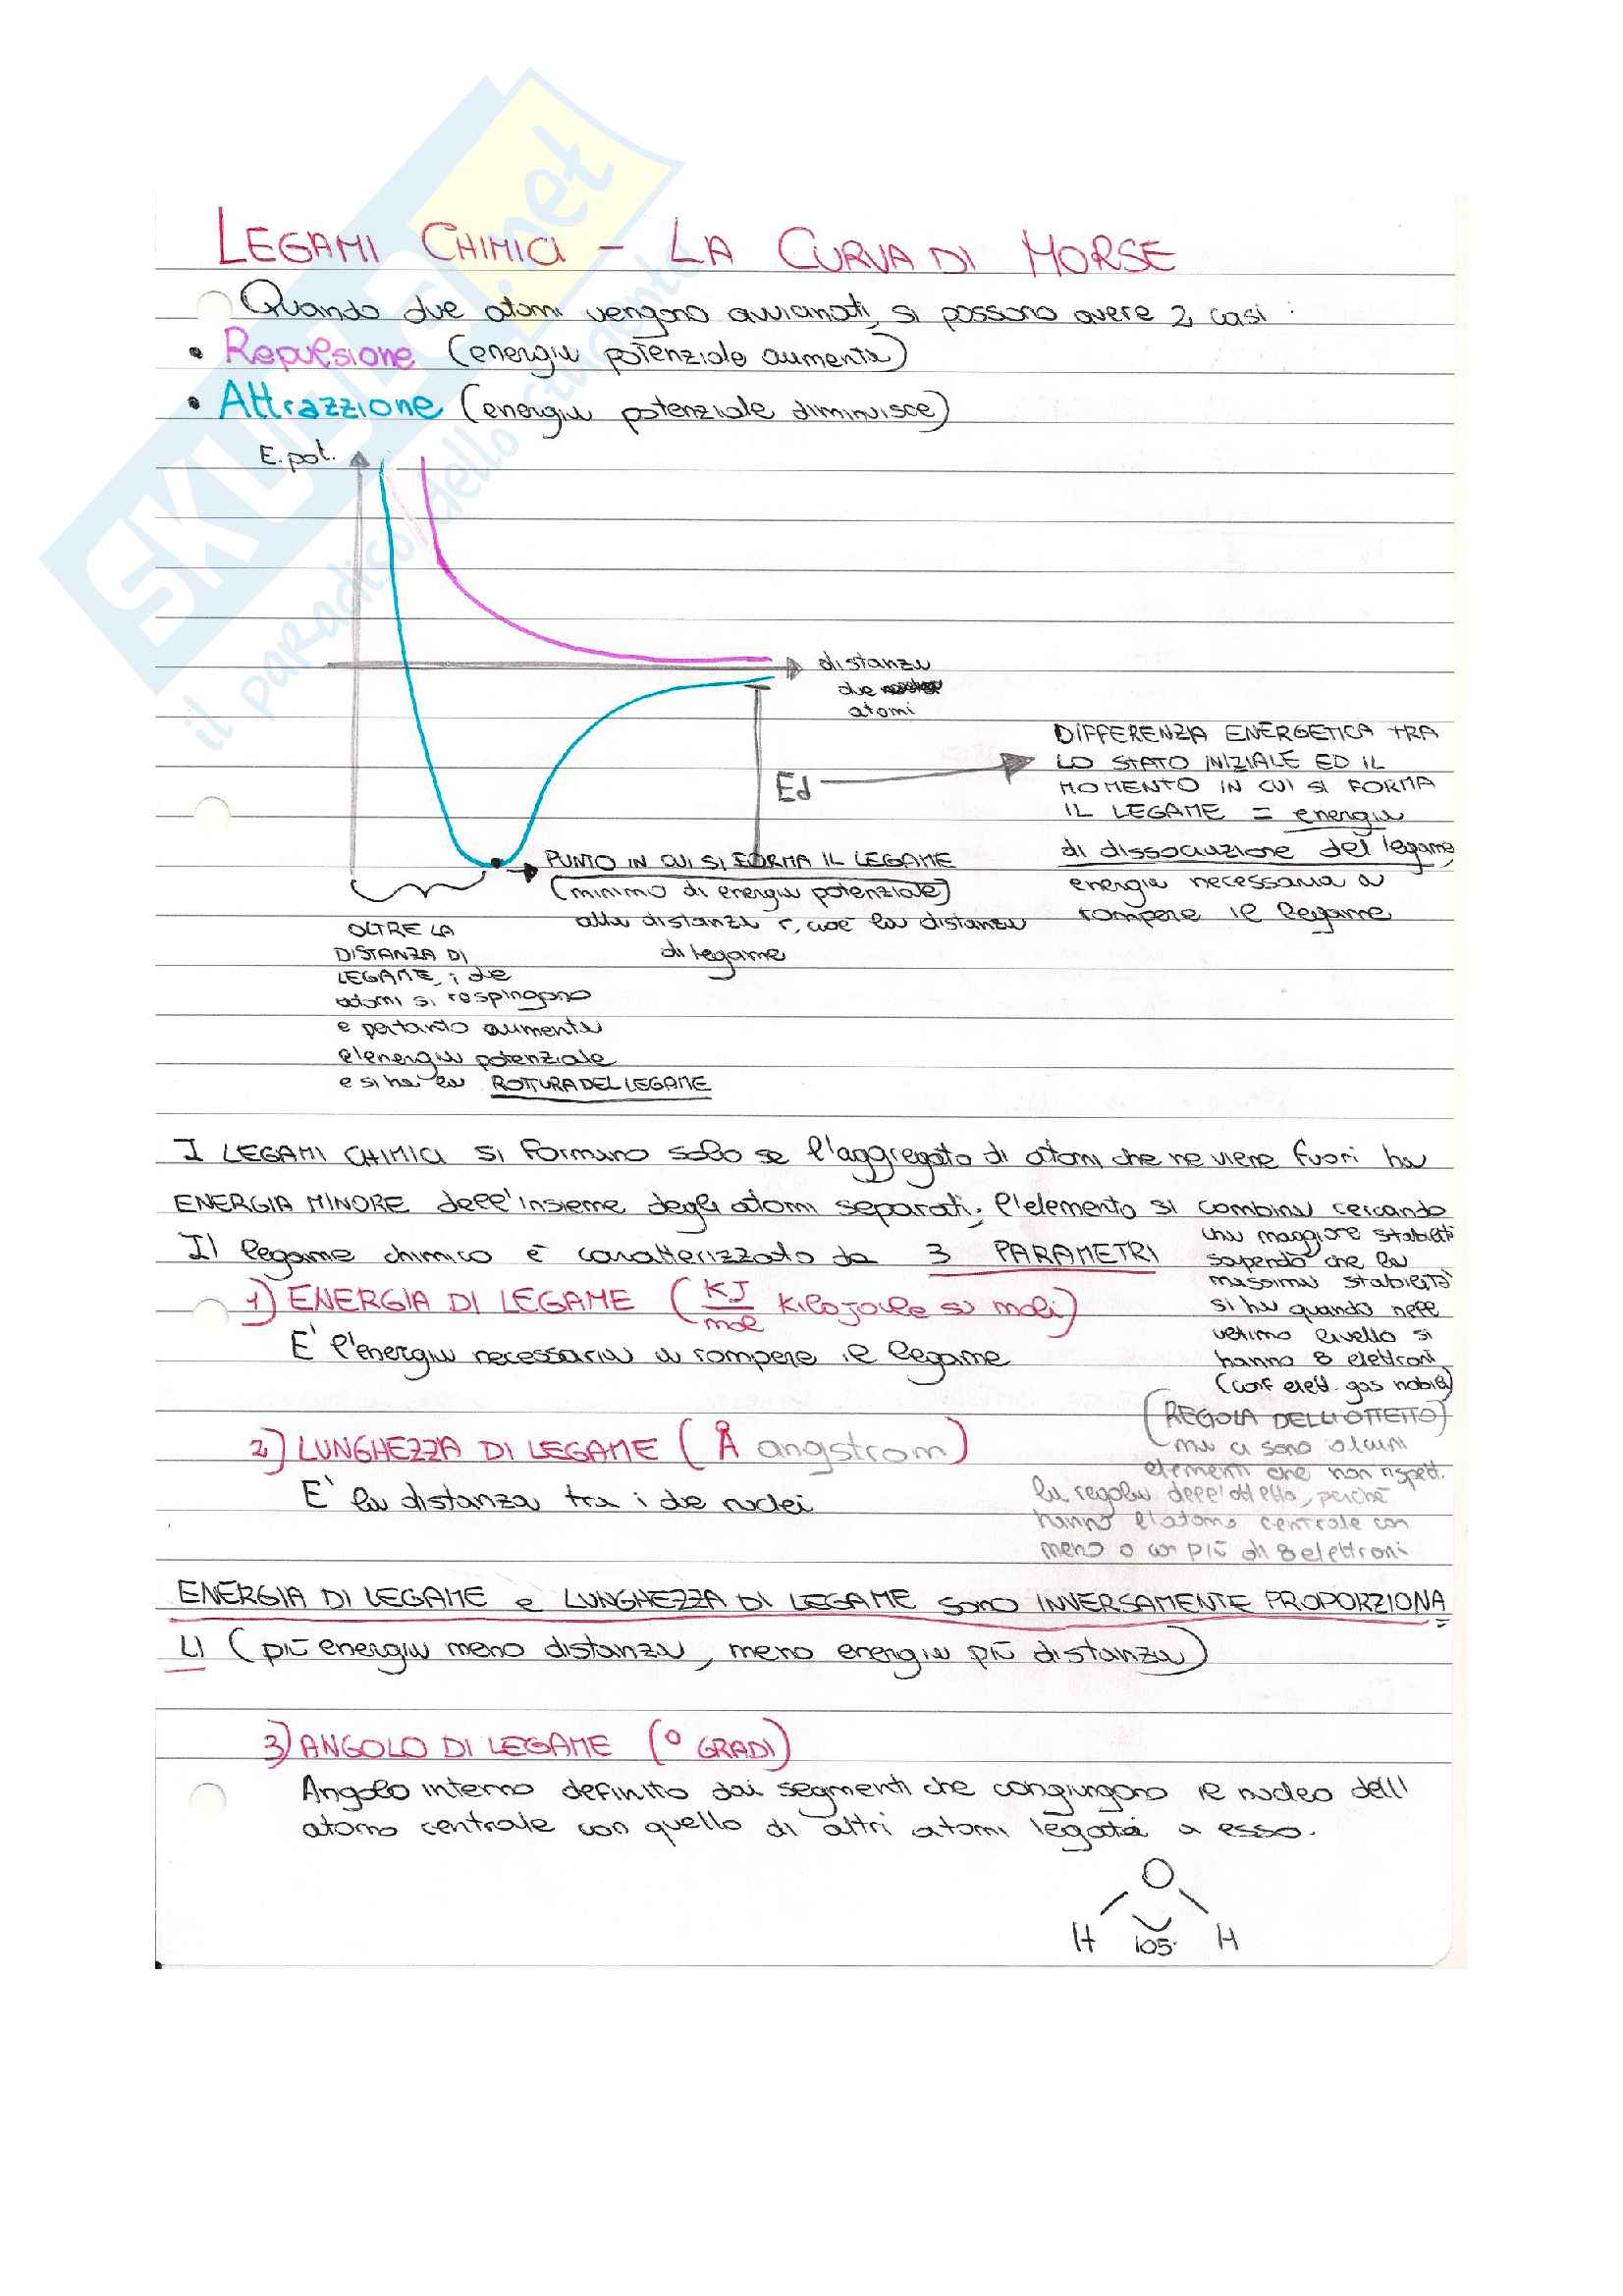 SKUOLA.net
il paradiso dello studente
LEGAMI CHIMICI - LA CURVA DI MORSE
Quando due atomi vengono avvicinati, si possono avere 2 casi :
• Repulsione (energia potenziale aumenta)
• Attrazzione (energia potenziale diminuisce)
E.pot.
distanza
due
atomi
Ed
DIFFERENZA ENERGETICA TRA
LO STATO INIZIALE ED IL
MOMENTO IN CUI SI FORMA
IL LEGAME = energia
di dissociazione del legame,
energia necessaria a
rompere il legame
PUNTO IN CUI SI FORMA IL LEGAME
(minimo di energia potenziale)
alla distanza r, cioè la distanza
di legame
OLTRE LA
DISTANZA DI
LEGAME, i due
atomi si respingono
e pertanto aumenta
l'energia potenziale
e si ha la ROTTURA DEL LEGAME
I LEGAMI CHIMICI si formano solo se l'aggregato di atomi che ne viene fuori ha
ENERGIA MINORE dell'insieme degli atomi separati; l'elemento si combina cercando
una maggiore stabilità
sapendo che la
massima stabilità
si ha quando nell
ultimo livello si
hanno 8 elettroni
(conf elett. gas nobili)
(REGOLA DELL'OTTETTO)
ma ci sono alcuni
elementi che non rispett.
la regola dell'ottetto, perchè
hanno l'atomo centrale con
meno o con più di 8 elettroni
Il legame chimico è caratterizzato da 3 PARAMETRI
1) ENERGIA DI LEGAME (KJ/mol Kilojoule su moli)
E' l'energia necessaria a rompere il legame
2) LUNGHEZZA DI LEGAME (Å angstrom)
E' la distanza tra i due nuclei
ENERGIA DI LEGAME e LUNGHEZZA DI LEGAME sono INVERSAMENTE PROPORZIONA=
LI (più energia meno distanza, meno energia più distanza)
3) ANGOLO DI LEGAME (° GRADI)
Angolo interno definito dai segmenti che congiungono il nucleo dell'
atomo centrale con quello di altri atomi legati a esso.
O
H 105° H